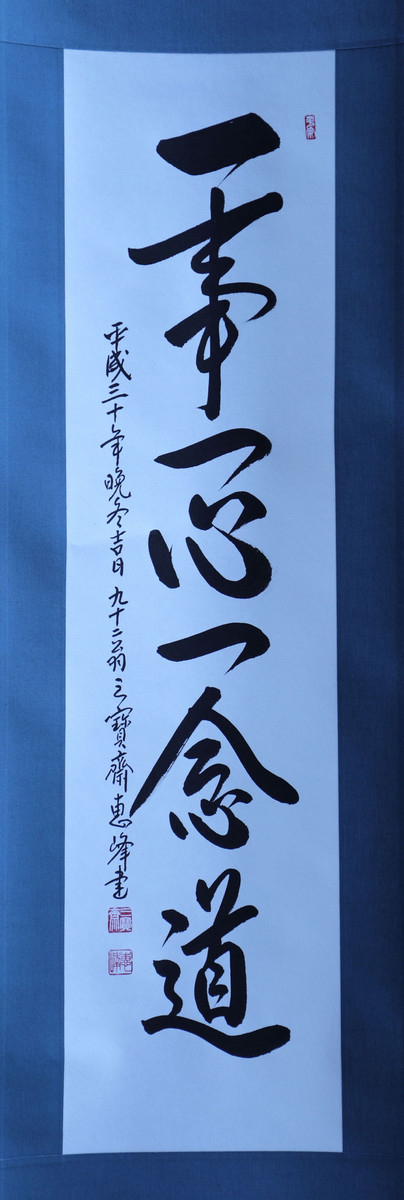 一事一心一念道
平成三十年晩冬吉日 九十二翁 三寳齋惠峰書